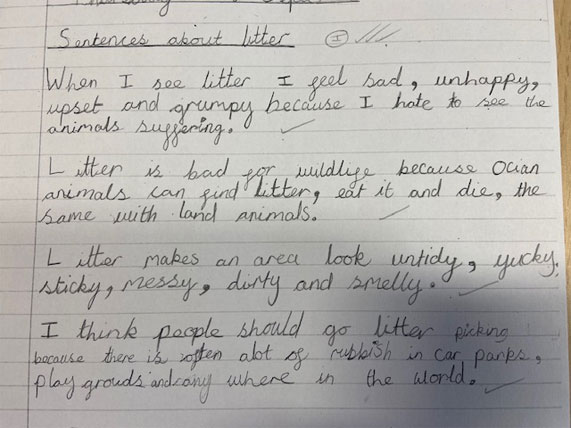 Sentences about litter
When I see litter I feel sad, unhappy,
upset and grumpy because I hate to see the
animals suffering.
Litter is bad for wildlife because Ocian
animals can find litter, eat it and die, the
same with land animals.
Litter makes an area look untidy, yucky,
sticky, messy, dirty and smelly.
I think people should go litter picking
because there is often alot of rubbish in car parks,
play grouds and any where in the world.